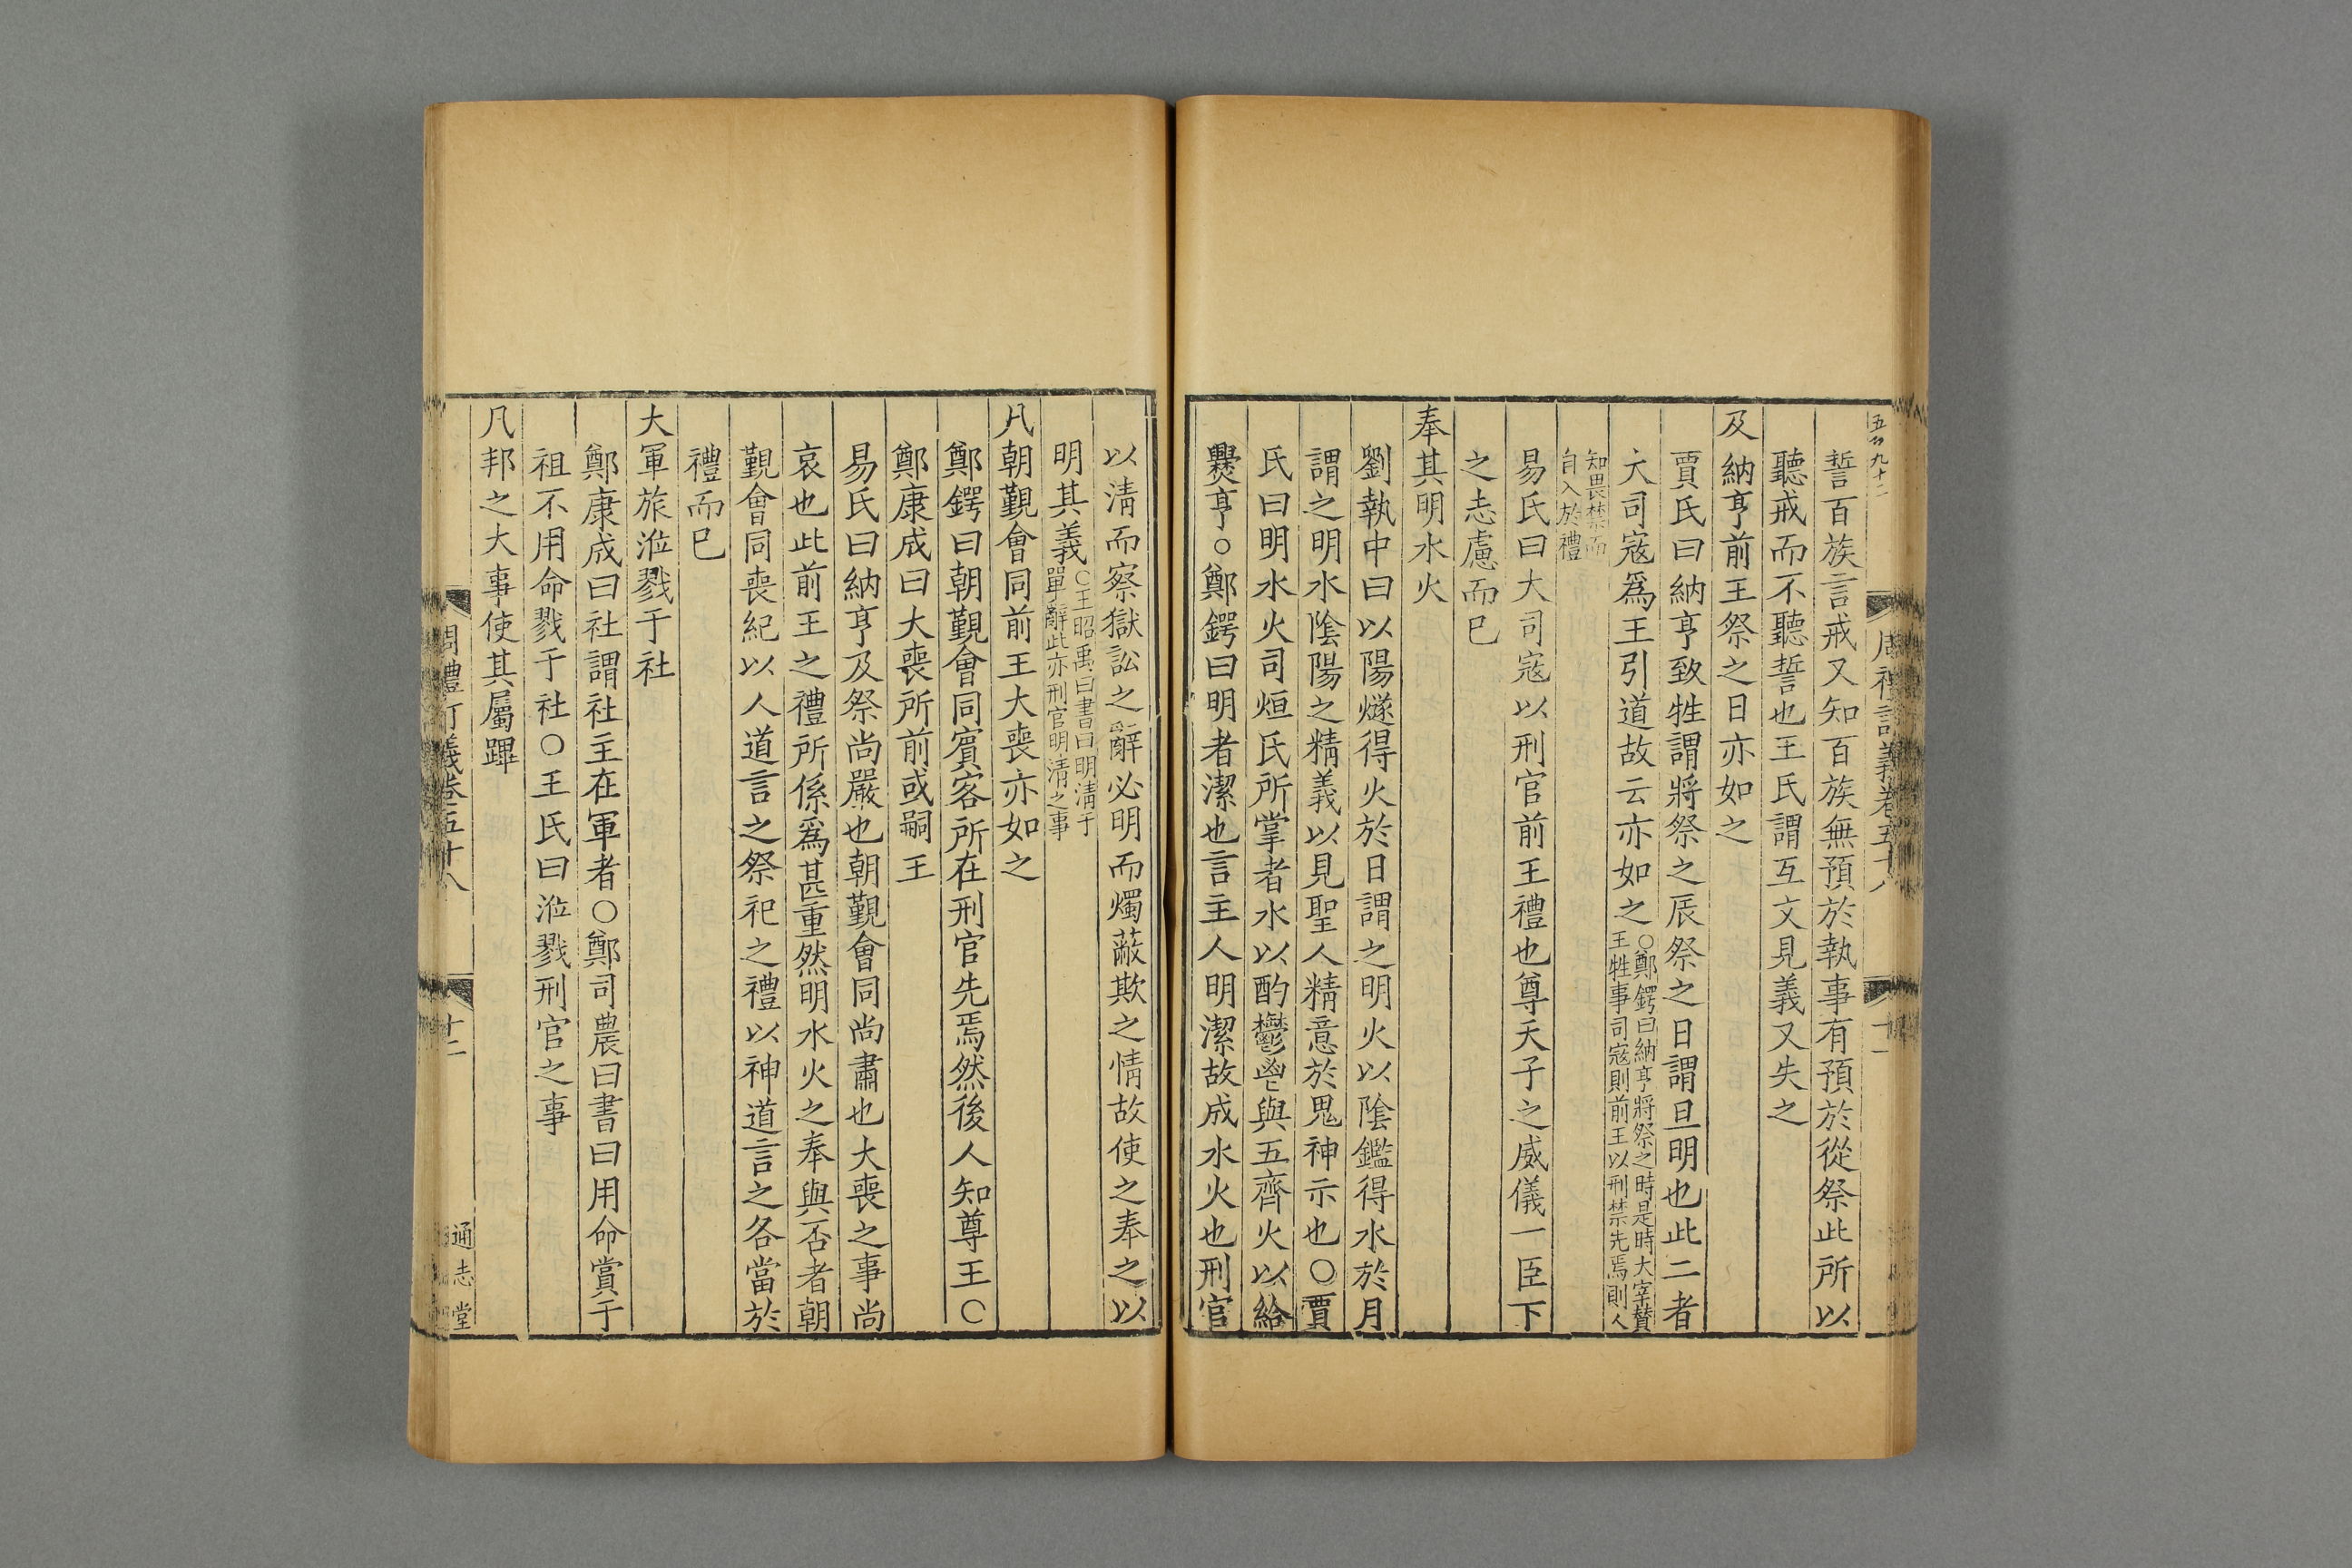 誓百族言戒又知百族無預於執事有預於從祭此所以
聽戒而不聽誓也王氏謂互文見義又失之
及納亨前王祭之日亦如之
賈氏曰納亨致牲謂將祭之辰祭之日謂旦明也此二者
大司寇爲王引道故云亦如之○鄭鍔曰納亨將祭之時是時大宰贊
王牲事司寇則前王以刑禁先焉則人
知畏禁而
自入於禮
易氏曰大司寇以刑官前王禮也尊天子之威儀一臣下
之志慮而已
奉其明水火
劉執中曰以陽燧得火於日謂之明火以陰鑑得水於月
謂之明水陰陽之精義以見聖人精意於鬼神示也○賈
氏曰明水火司烜氏所掌者水以酌鬱鬯與五齊火以給
爨亨○鄭鍔曰明者潔也言主人明潔故成水火也刑官
以淸而察獄訟之辭必明而燭蔽欺之情故使之奉之以
明其義○王昭禹曰書曰明淸于
單辭此亦刑官明淸之事
凡朝覲會同前王大喪亦如之
鄭鍔曰朝覲會同賓客所在刑官先焉然後人知尊王○
鄭康成曰大喪所前或嗣王
易氏曰納亨及祭尚嚴也朝覲會同尚肅也大喪之事尚
哀也此前王之禮所係爲甚重然明水火之奉與否者朝
覲會同喪紀以人道言之祭祀之禮以神道言之各當於
禮而已
大軍旅涖戮于社
鄭康成曰社謂社主在軍者○鄭司農曰書曰用命賞于
祖不用命戮于社○王氏曰涖戮刑官之事
凡邦之大事使其屬蹕
周禮訂義卷五十八
十二
通志堂